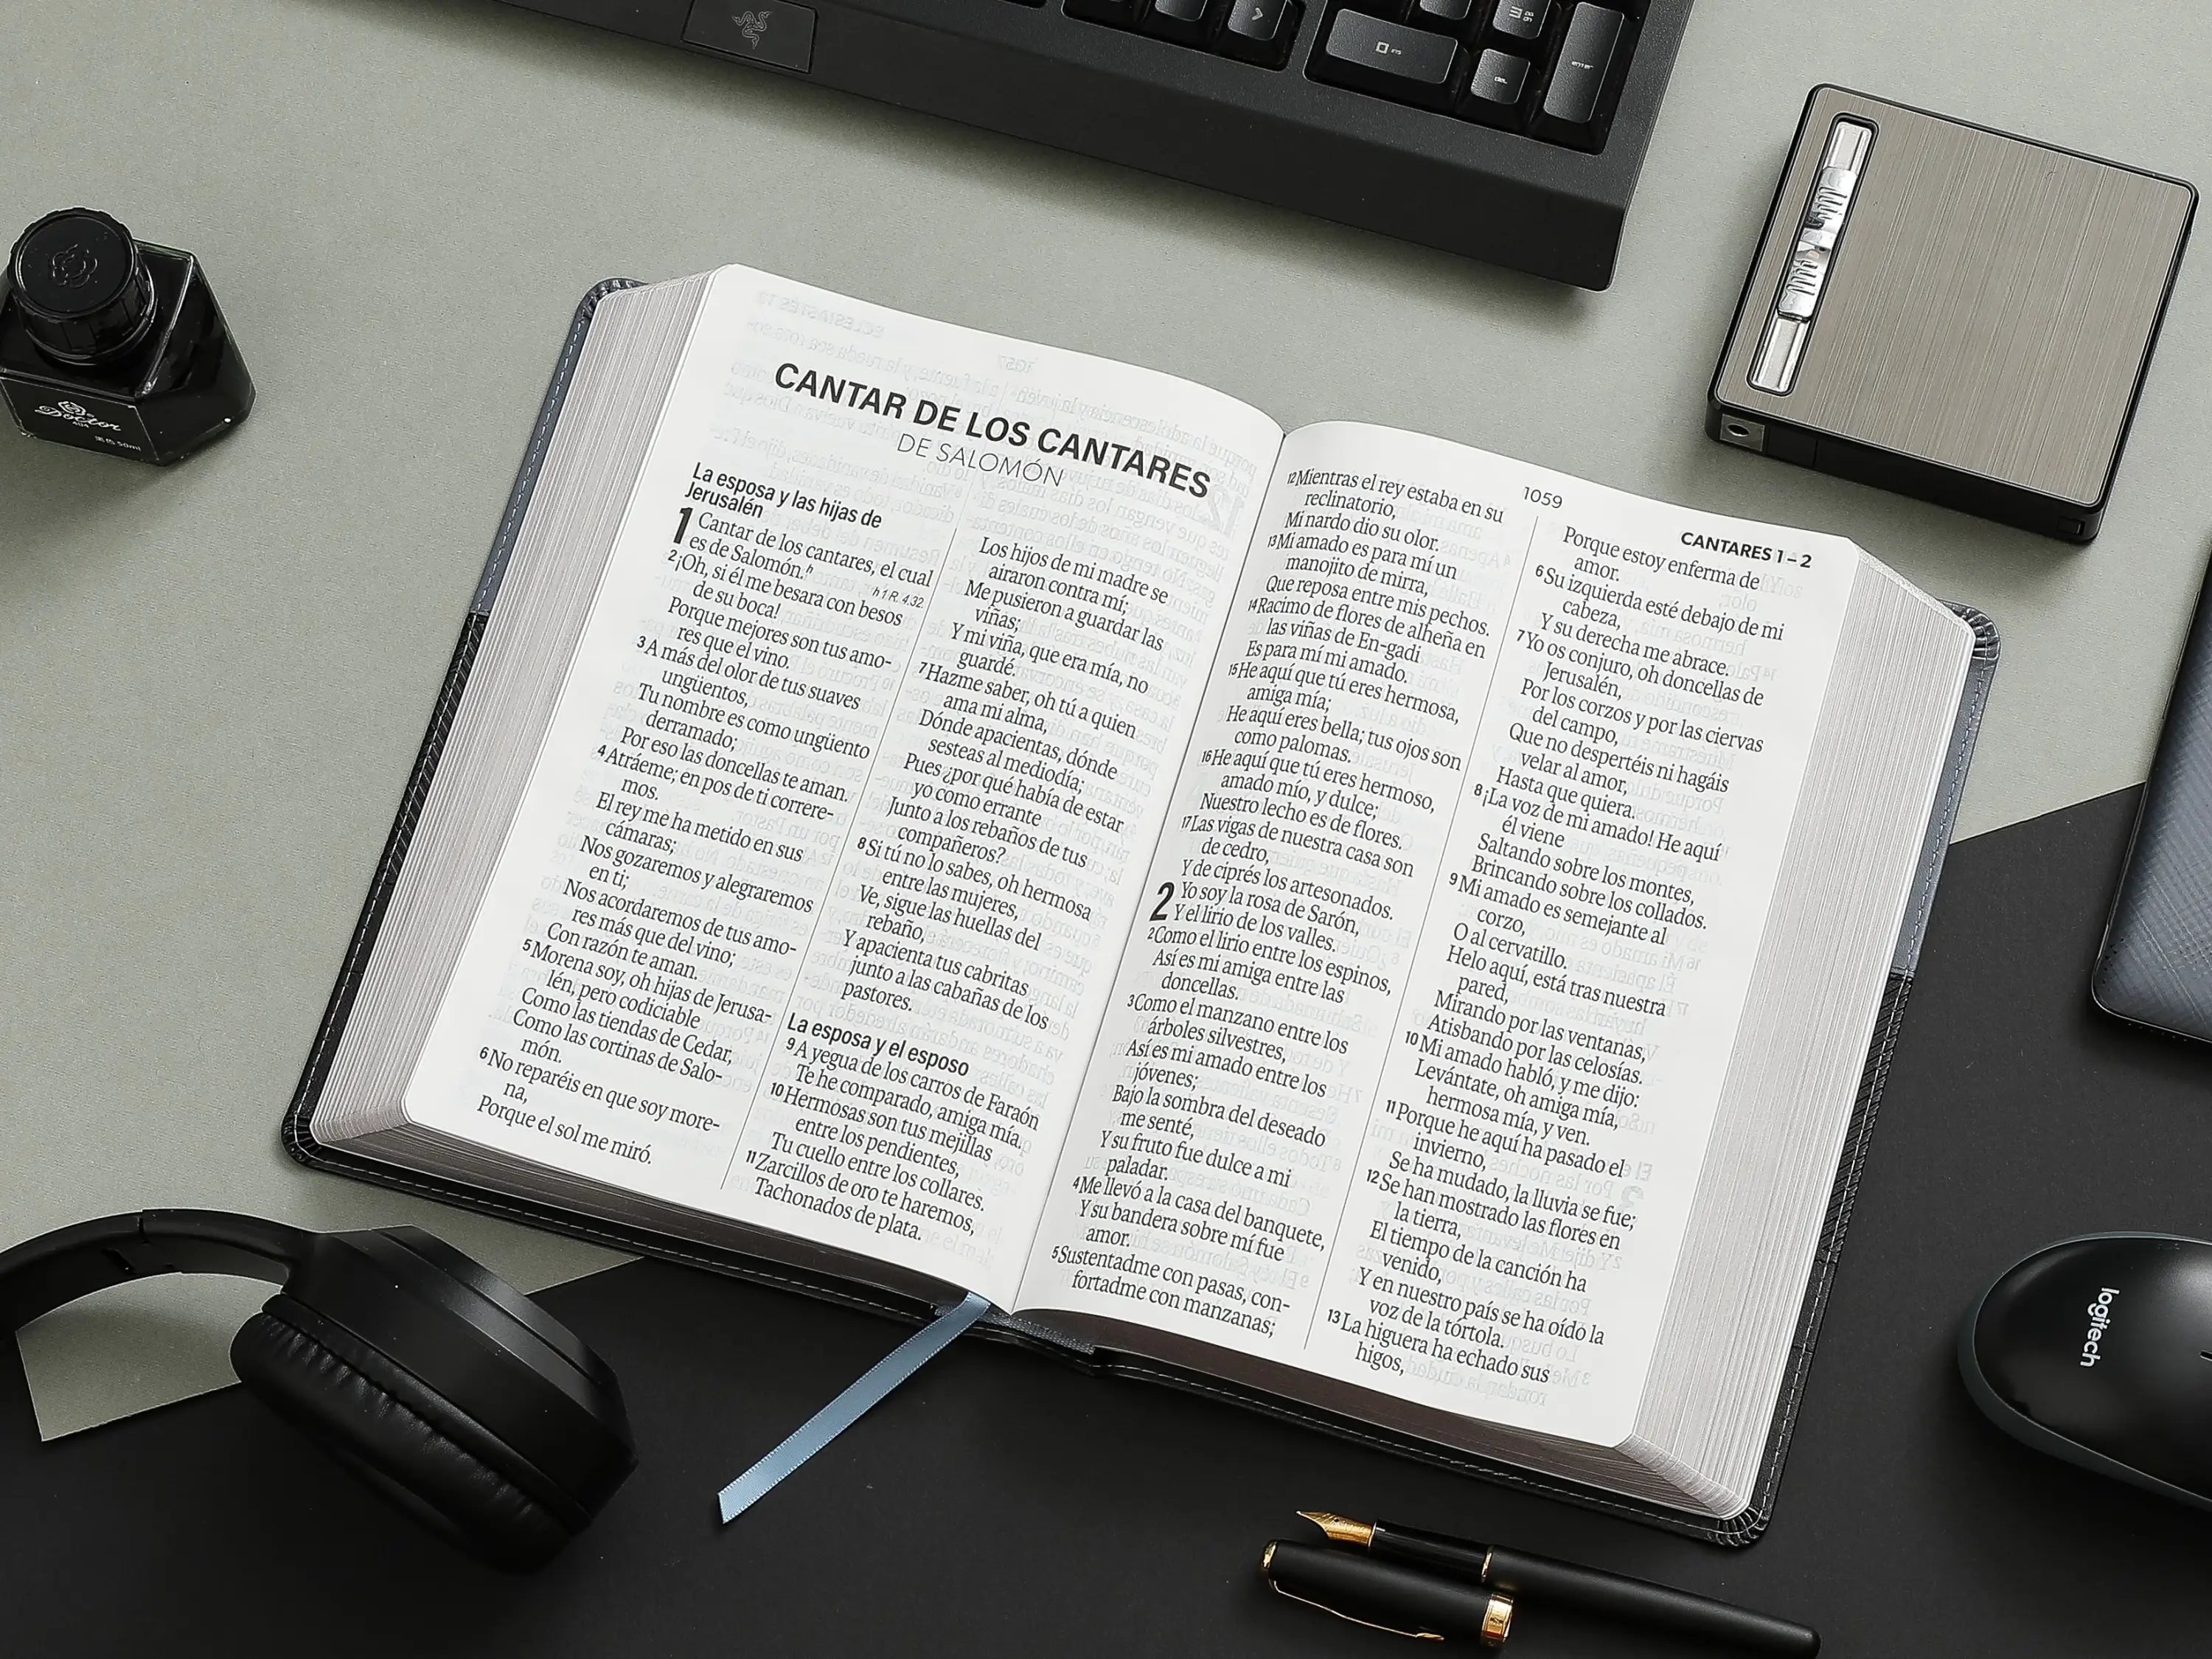 CANTAR DE LOS CANTARES
DE SALOMÓN
La esposa y las hijas de
Jerusalén
1 Cantar de los cantares, el cual
es de Salomón.h
h 1 R. 4.32
2 ¡Oh, si él me besara con besos
de su boca!
Porque mejores son tus amo-
res que el vino.
3 A más del olor de tus suaves
ungüentos,
Tu nombre es como ungüento
derramado;
Por eso las doncellas te aman.
4 Atráeme; en pos de ti correre-
mos.
El rey me ha metido en sus
cámaras;
Nos gozaremos y alegraremos
en ti;
Nos acordaremos de tus amo-
res más que del vino;
Con razón te aman.
5 Morena soy, oh hijas de Jerusa-
lén, pero codiciable
Como las tiendas de Cedar,
Como las cortinas de Salo-
món.
6 No reparéis en que soy more-
na,
Porque el sol me miró.
Los hijos de mi madre se
airaron contra mí;
Me pusieron a guardar las
viñas;
Y mi viña, que era mía, no
guardé.
7 Hazme saber, oh tú a quien
ama mi alma,
Dónde apacientas, dónde
sesteas al mediodía;
Pues ¿por qué había de estar
yo como errante
Junto a los rebaños de tus
compañeros?
8 Si tú no lo sabes, oh hermosa
entre las mujeres,
Ve, sigue las huellas del
rebaño,
Y apacienta tus cabritas
junto a las cabañas de los
pastores.
La esposa y el esposo
9 A yegua de los carros de Faraón
Te he comparado, amiga mía.
10 Hermosas son tus mejillas
entre los pendientes,
Tu cuello entre los collares.
11 Zarcillos de oro te haremos,
Tachonados de plata.
1059
CANTARES 1 – 2
12 Mientras el rey estaba en su
reclinatorio,
Mi nardo dio su olor.
13 Mi amado es para mí un
manojito de mirra,
Que reposa entre mis pechos.
14 Racimo de flores de alheña en
las viñas de En-gadi
Es para mí mi amado.
15 He aquí que tú eres hermosa,
amiga mía;
He aquí eres bella; tus ojos son
como palomas.
16 He aquí que tú eres hermoso,
amado mío, y dulce;
Nuestro lecho es de flores.
17 Las vigas de nuestra casa son
de cedro,
Y de ciprés los artesonados.
2 Yo soy la rosa de Sarón,
Y el lirio de los valles.
2 Como el lirio entre los espinos,
Así es mi amiga entre las
doncellas.
3 Como el manzano entre los
árboles silvestres,
Así es mi amado entre los
jóvenes;
Bajo la sombra del deseado
me senté,
Y su fruto fue dulce a mi
paladar.
4 Me llevó a la casa del banquete,
Y su bandera sobre mí fue
amor.
5 Sustentadme con pasas, con-
fortadme con manzanas;
Porque estoy enferma de
amor.
6 Su izquierda esté debajo de mi
cabeza,
Y su derecha me abrace.
7 Yo os conjuro, oh doncellas de
Jerusalén,
Por los corzos y por las ciervas
del campo,
Que no despertéis ni hagáis
velar al amor,
Hasta que quiera.
8 ¡La voz de mi amado! He aquí
él viene
Saltando sobre los montes,
Brincando sobre los collados.
9 Mi amado es semejante al
corzo,
O al cervatillo.
Helo aquí, está tras nuestra
pared,
Mirando por las ventanas,
Atisbando por las celosías.
10 Mi amado habló, y me dijo:
Levántate, oh amiga mía,
hermosa mía, y ven.
11 Porque he aquí ha pasado el
invierno,
Se ha mudado, la lluvia se fue;
12 Se han mostrado las flores en
la tierra,
El tiempo de la canción ha
venido,
Y en nuestro país se ha oído la
voz de la tórtola.
13 La higuera ha echado sus
higos,
Doctor
404
黑色 50ml
enter
logitech